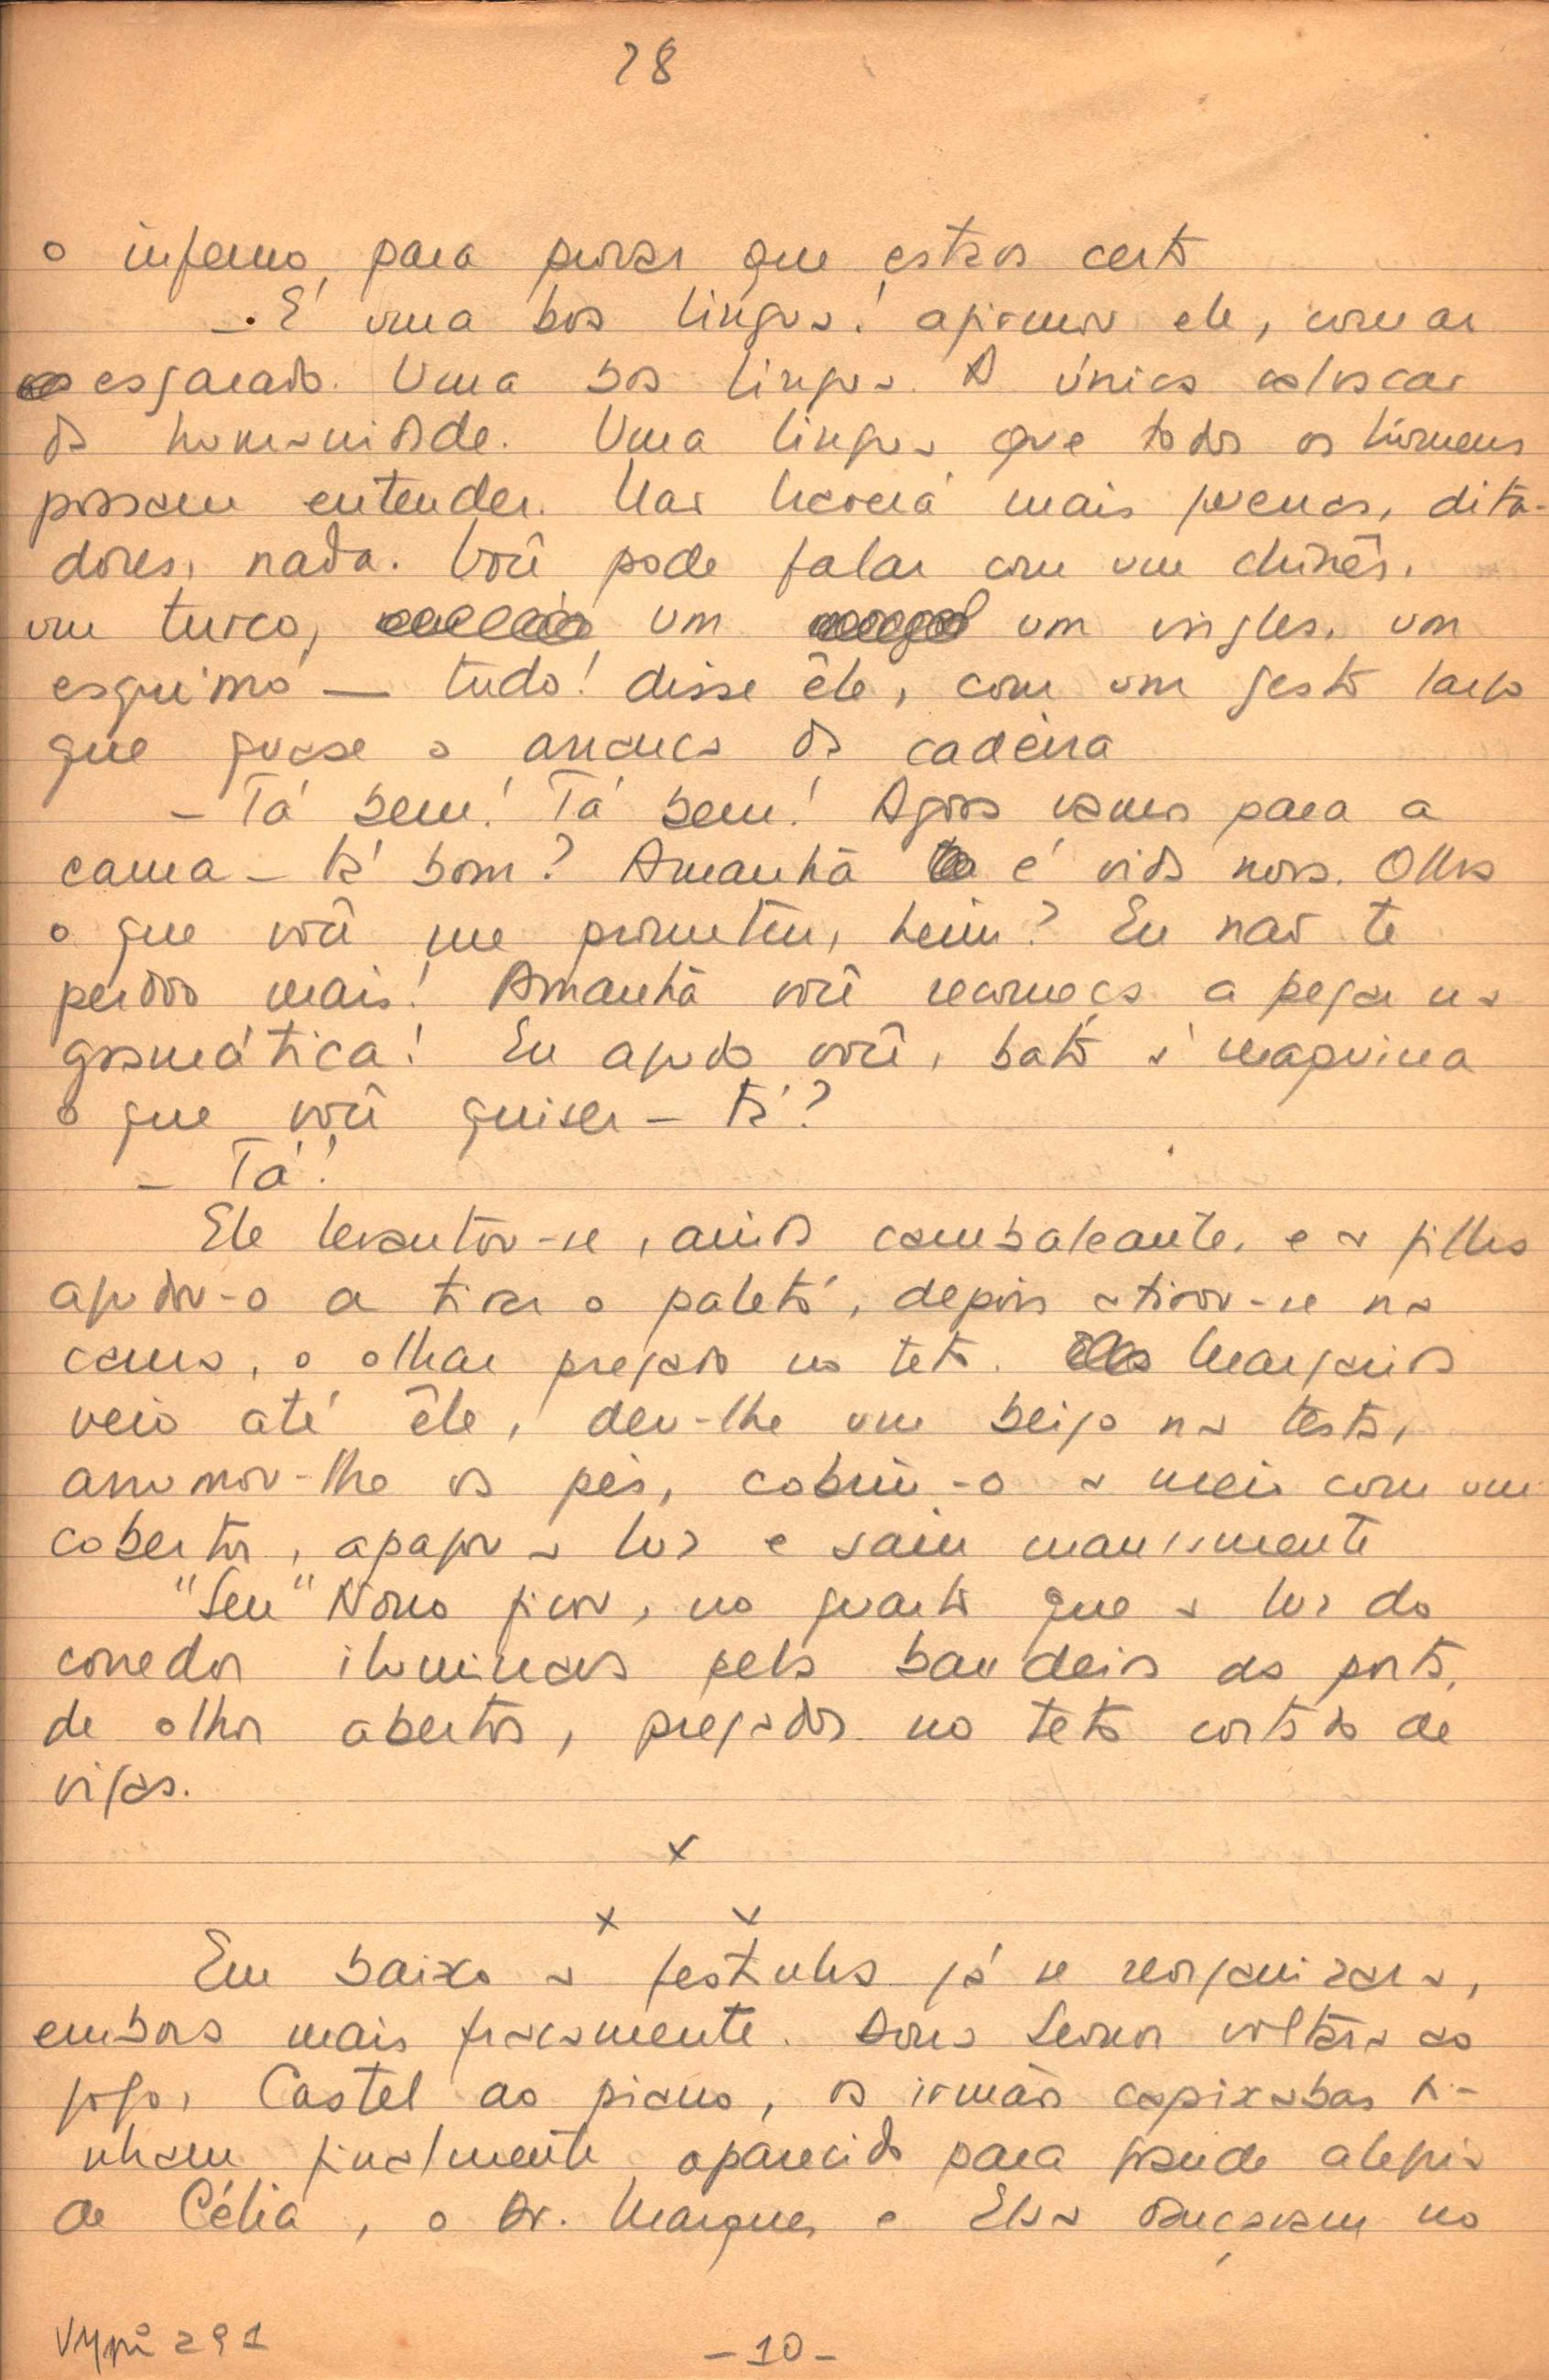 28
o inferno, para provar que estava certo
— É uma boa lingua! afirmou ele, com ar
esgarado. Uma boa lingua. A única a colocar
da humanidade. Uma lingua que todos os homens
possam entender. Não haverá mais guerras, dita-
dores, nada. Você pode falar com um chinês,
um turco, um um ingles, um
esquimó — tudo! disse êle, com um gesto largo
que quase o arranca da cadeira
— Tá bem! Tá bem! Agora vamos para a
cama — tá bom? Amanhã é vida nova. Olha
o que você me prometeu, hein? Eu não te
perdôo mais! Amanhã você recomeça a pegar na
gramática! Eu ajudo você, bato à maquina
o que você quiser — tá?
— Tá!
Ele levantou-se, ainda cambaleante, e a filha
ajudou-o a tirar o paletó, depois atirou-se na
cama, o olhar pregado no teto. Margarida
veio até êle, deu-lhe um beijo na testa,
arrumou-lhe os pés, cobriu-o a meio com um
cobertor, apagou a luz e saiu mansamente
"Seu" Nono ficou, no quarto que a luz do
corredor iluminava pela bandeira da porta,
de olhos abertos, pregados no teto cortado de
vigas.
x
x x
Em baixo a festinha já se reorganizara,
embora mais fracamente. Dona Leonor voltara ao
jogo, Castel ao piano, os irmãos capixabas ti-
nham finalmente aparecido para grande alegria
de Célia, o Dr. Marques e Elsa dançavam no
VMpi 291
- 10 -